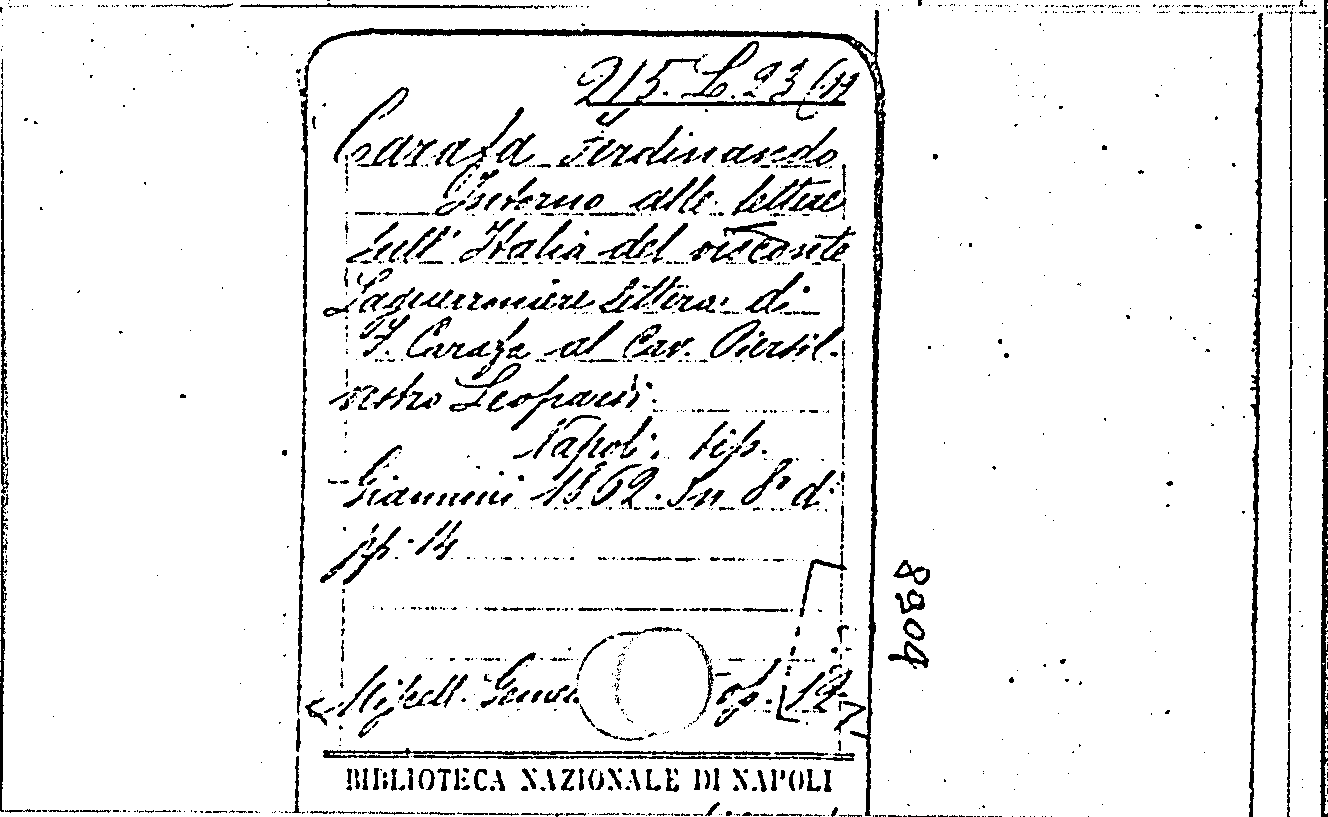 215. L. 23 (12
Carafa Ferdinando
Intorno alle lettere
sull' Italia del visconte
Laguerroniere lettera di
F. Carafa al Cav. Piersil-
vestro Leopardi.
Napoli. tip.
Giannini 1862. In 8° di
pp. 14
Miscell. Gener op. 12
BIBLIOTECA NAZIONALE DI NAPOLI
8909